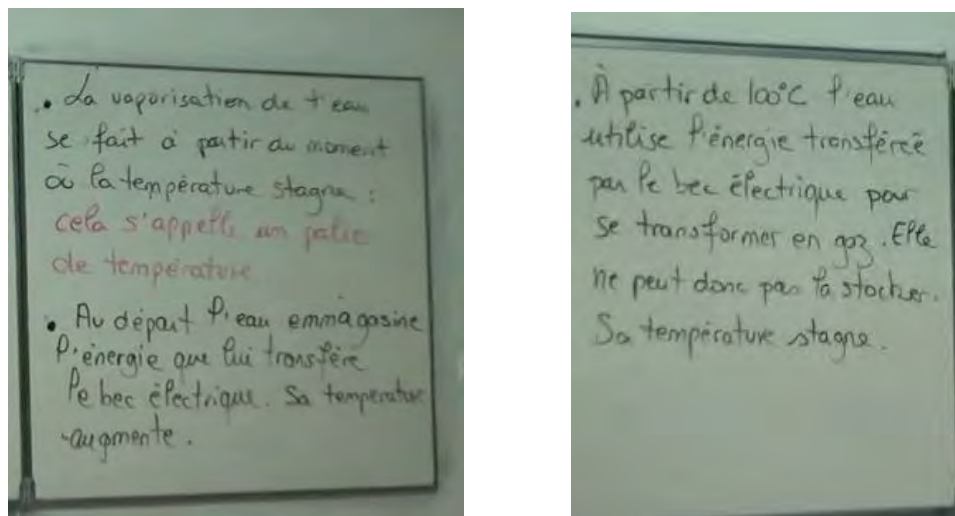 . La vaporisation de l'eau
se fait à partir du moment
où la température stagne :
cela s'appelle un palie
de température
. Au départ l'eau emmagasine
l'énergie que lui transfère
le bec électrique. Sa température
augmente.
. À partir de 100°C l'eau
utilise l'énergie transférée
par le bec électrique pour
se transformer en gaz. Elle
ne peut donc pas la stocker.
Sa température stagne.